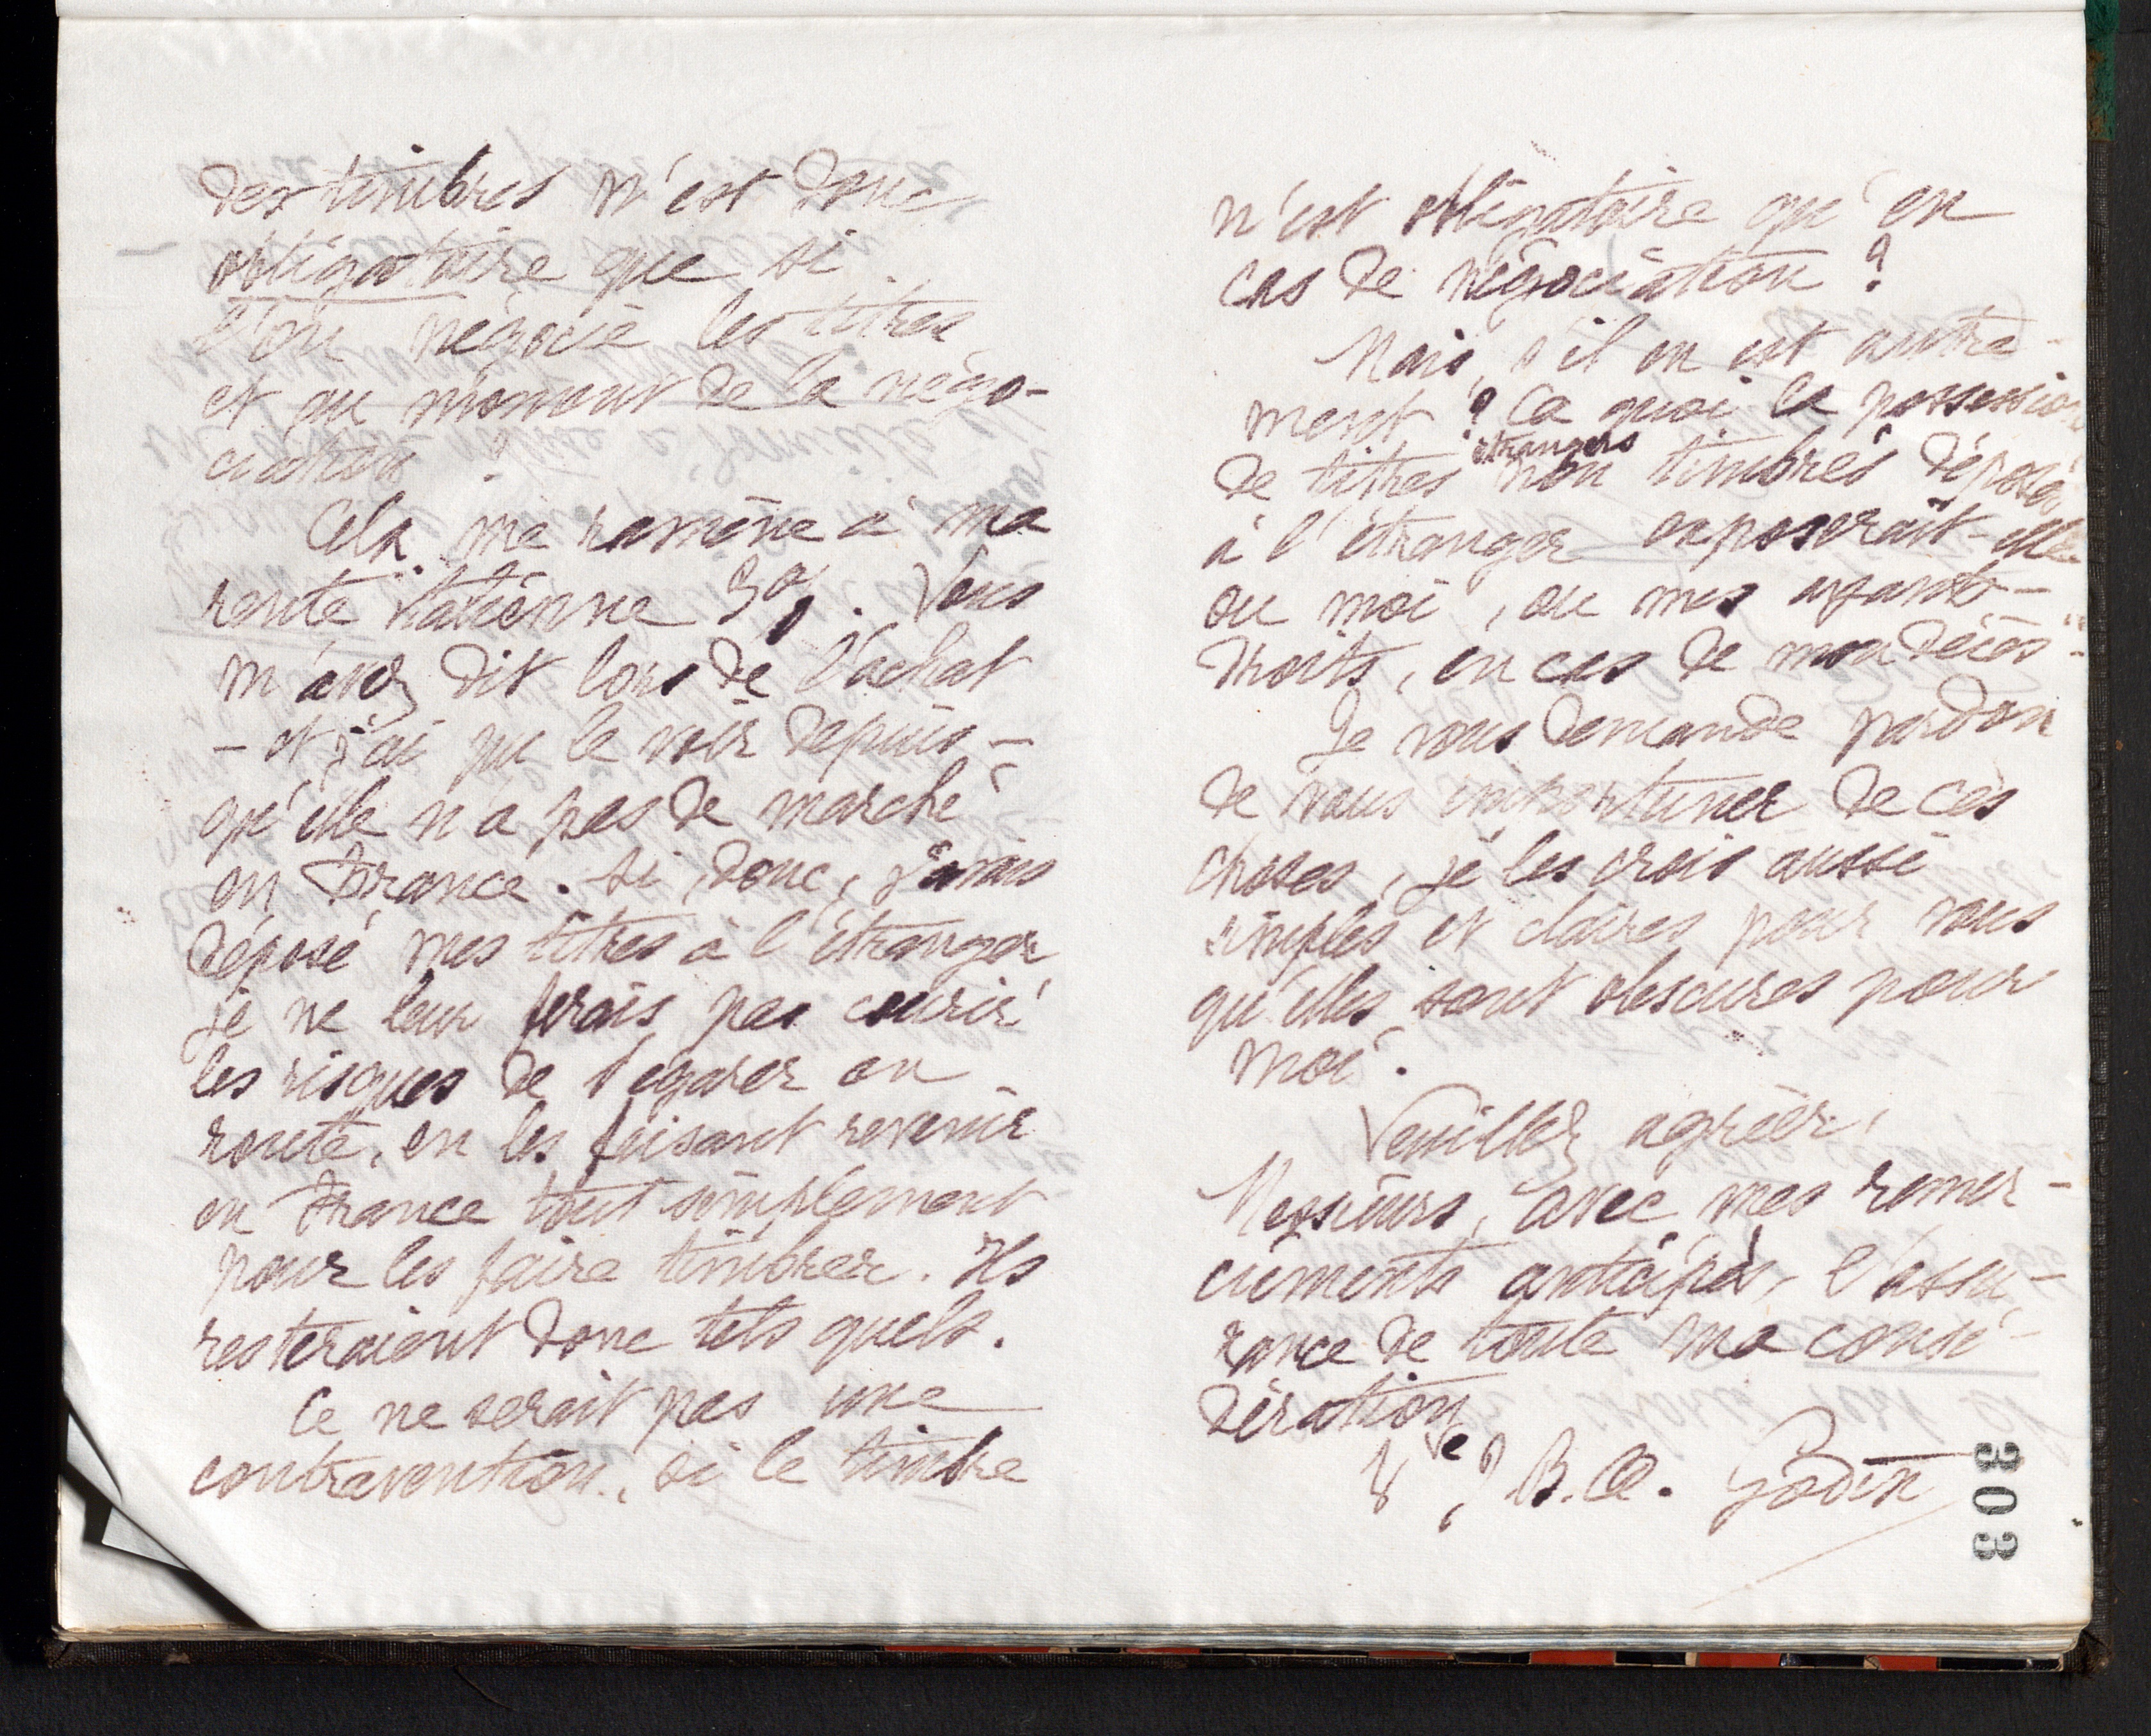 des timbres n'est donc
obligatoire que si
l'on négocie les titres
et au moment de la négo-
ciation ?
Cela me ramène à ma
rente italienne 5%. Vous
m'avez dit lors de l'achat
- et j'ai pu le voir depuis -
qu'elle n'a pas de marché
en France. Si, donc, j'avais
déposé mes titres à l'étranger
je ne leur ferais pas courir
les risques de s'égarer en
route, en les faisant revenir
en France tout simplement
pour les faire timbrer. Ils
resteraient donc tels quels.
Ce ne serait pas une
contravention, si le timbre
n'est obligatoire qu'en
cas de négociation ?
Mais, s'il en est autre-
ment ? à quoi la possession
de titres étrangers non timbrés déposés
à l'étranger exposerait-elle
ou moi, ou mes ayants-
droits, en cas de mon décès
Je vous demande pardon
de vous importuner de ces
choses, je les crois aussi
simples et claires pour vous
qu'elles sont obscures pour
moi.
Veuillez agréer,
Messieurs, avec mes remer-
ciements anticipés, l'assu-
rance de toute ma consi-
dération
Vve J. B. A. Godin
303